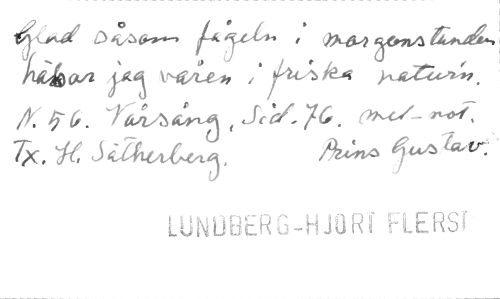 Glad såsom fågeln i morgonstunden
hälsar jag våren i friska naturn.
N. 56. Vårsång, Sid. 76. mel-not.
Tx. H. Sätherberg. Prins Gustav.
LUNDBERG-HJORT FLERST